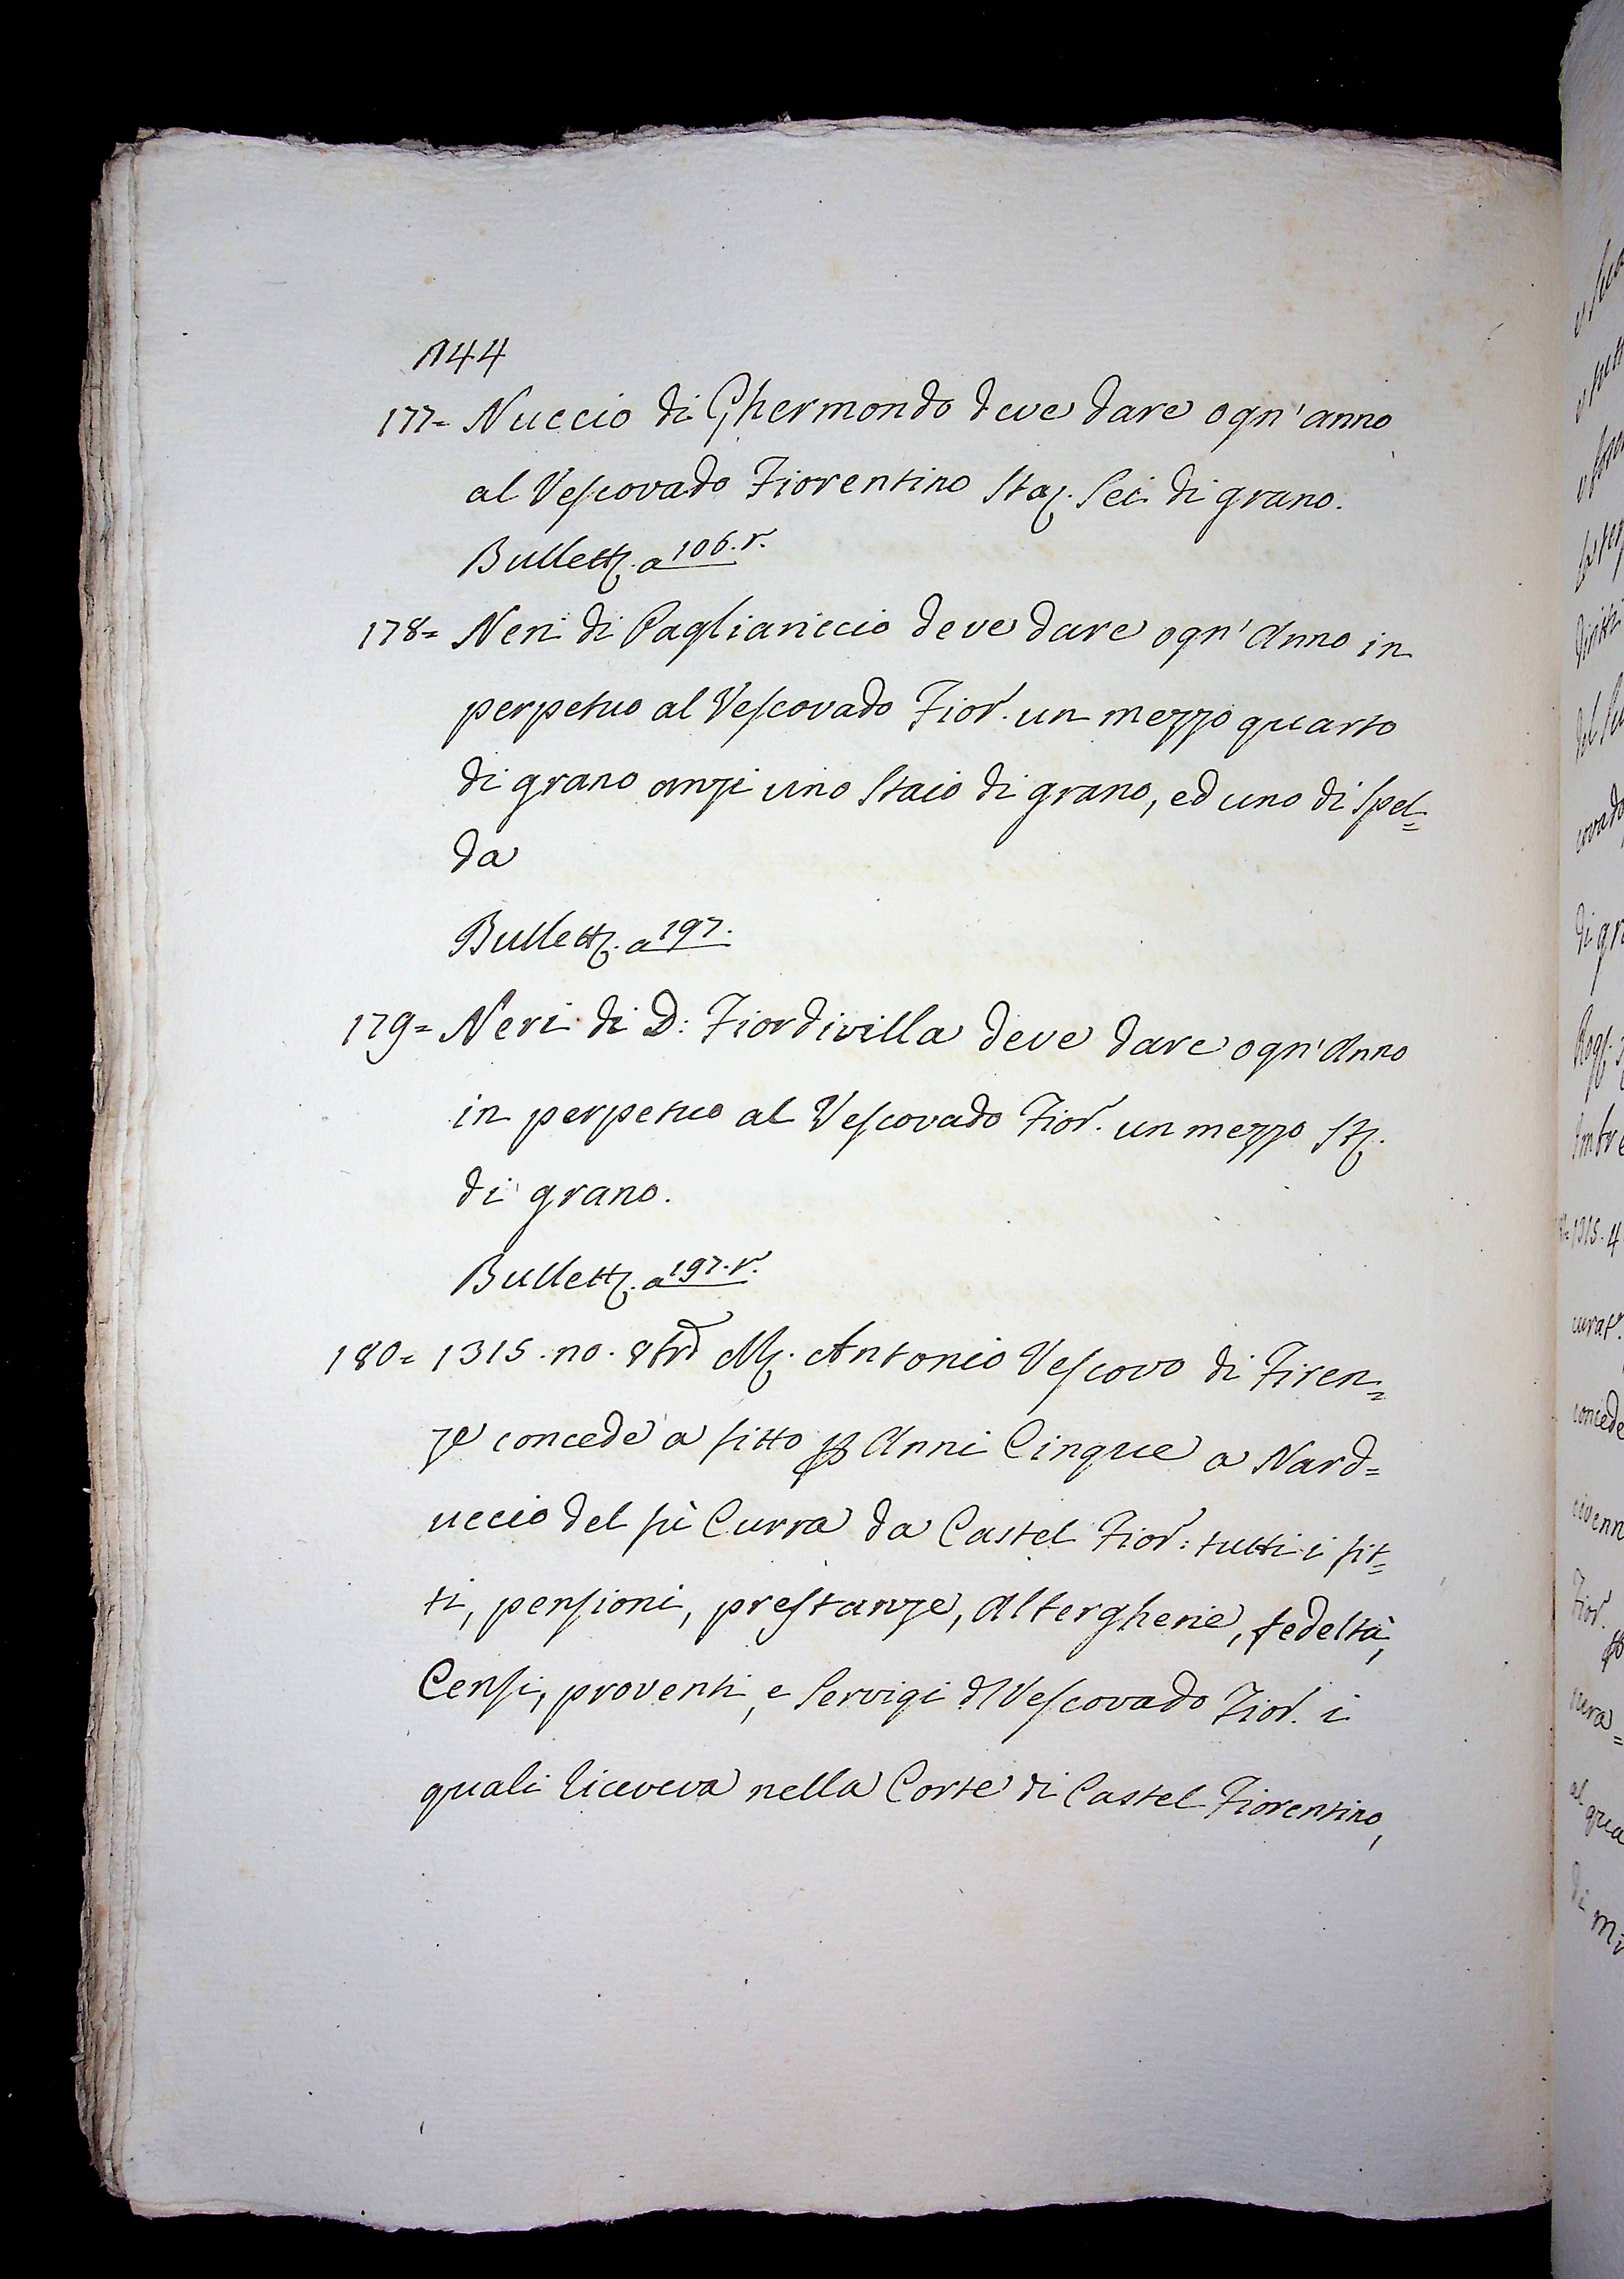 144
177= Nuccio di Ghermondo deve dare ogn'anno
al Vescovado Fiorentino Staj. Sei di grano.
Bullett. a 106. r.
178= Neri di Pagliariccio deve dare ogn'Anno in
perpetuo al Vescovado Fior. un mezzo quarto
di grano anzi uno Staio di grano, ed uno di Spel=
da
Bullett. a 197.
179= Neri di D: Fiordivilla deve dare ogn'Anno
in perpetuo al Vescovado Fior. un mezzo St.
di grano.
Bullett. a 197. r.
180= 1315. no. 8bre M. Antonio Vescovo di Firen=
ze concede a fitto p Anni Cinque a Nard=
uccio del fù Curra da Castel Fior: tutti i fit=
ti, pensioni, prestanze, Altergherie, fedeltà,
Censi, proventi, e Servigi dl Vescovado Fior. i
quali riceveva nella Corte di Castel Fiorentino,